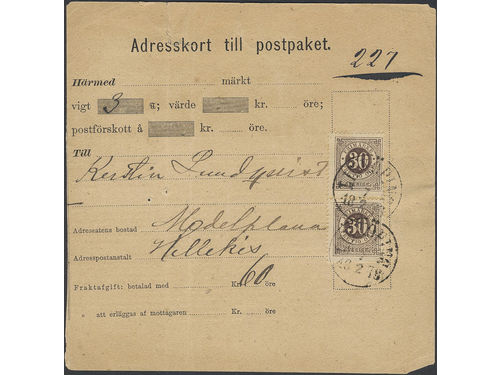 Adresskort till postpaket.
227
Härmed märkt
vigt 3 ℔; värde kr. öre;
postförskott å kr. öre.
Till
Kerstin Lundqvist
Adressatens bostad Medelplana
Adresspostanstalt Hellekis
Fraktafgift: betalad med Kr. 60 öre
" att erläggas af mottagaren Kr. öre
30
30